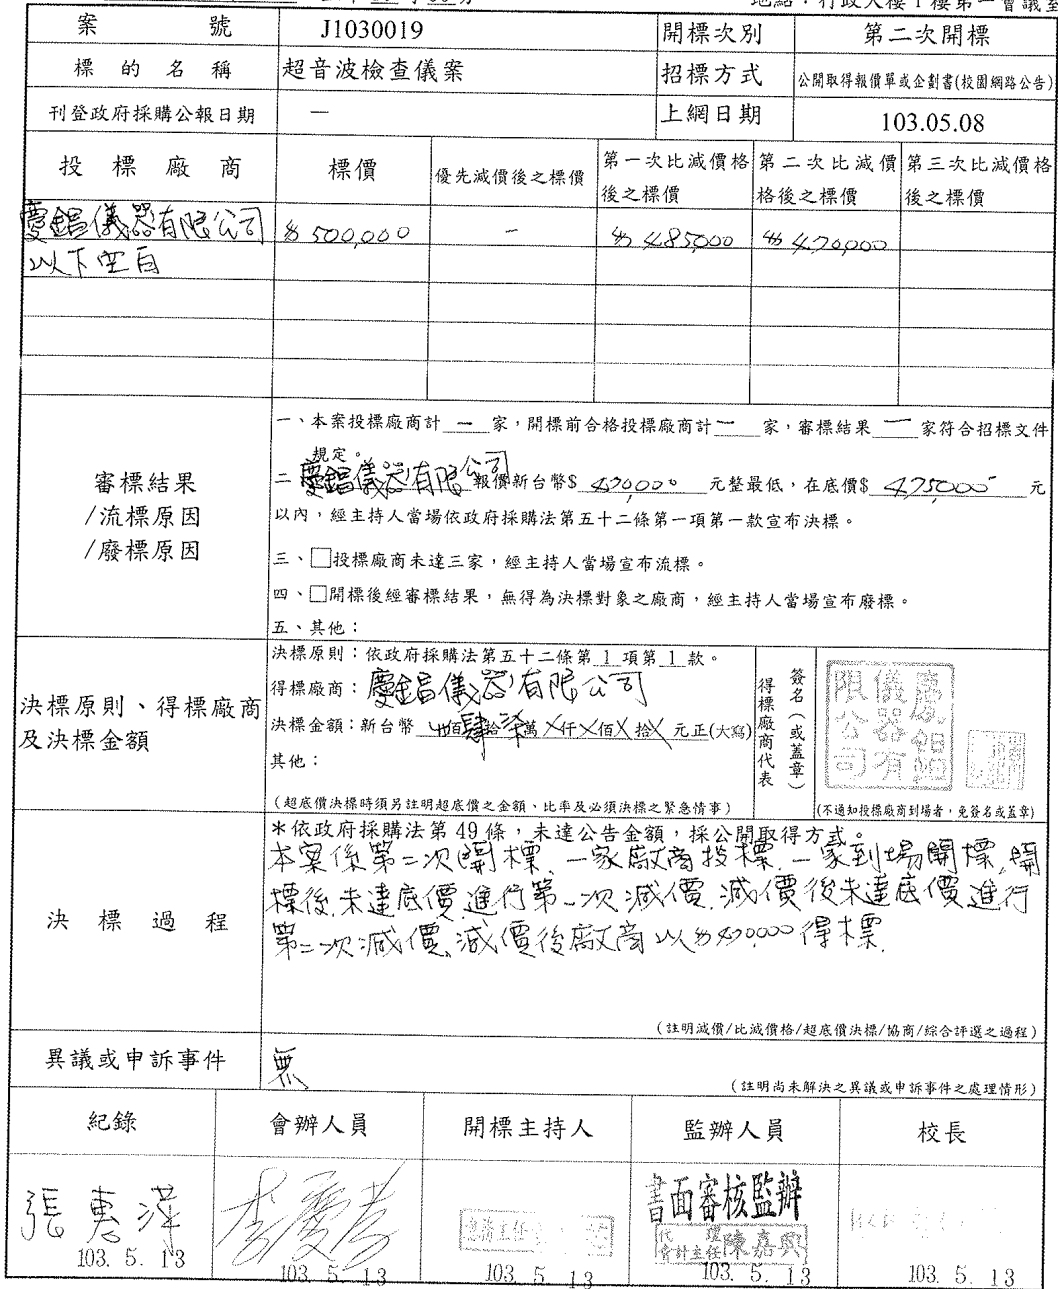 地點：行政大樓1樓第一會議室
案 號 J1030019 開標次別 第二次開標
標的名稱 超音波檢查儀案 招標方式 公開取得報價單或企劃書(校園網路公告)
刊登政府採購公報日期 — 上網日期 103.05.08
投標廠商 標價 優先減價後之標價 第一次比減價格後之標價 第二次比減價格後之標價 第三次比減價格後之標價
慶錩儀器有限公司 $500,000 - $485,000 $470,000
以下空白
審標結果
/流標原因
/廢標原因
一、本案投標廠商計 一 家，開標前合格投標廠商計 一 家，審標結果 一 家符合招標文件
規定。
二 慶錩儀器有限公司 報價新台幣$ 470,000 元整最低，在底價$ 475,000 元
以內，經主持人當場依政府採購法第五十二條第一項第一款宣布決標。
三、□投標廠商未達三家，經主持人當場宣布流標。
四、□開標後經審標結果，無得為決標對象之廠商，經主持人當場宣布廢標。
五、其他：
決標原則、得標廠商
及決標金額
決標原則：依政府採購法第五十二條第 1 項第 1 款。
得標廠商：慶錩儀器有限公司
決標金額：新台幣 佰肆拾柒萬X仟X佰X拾X元正(大寫)
其他：
(超底價決標時須另註明超底價之金額、比率及必須決標之緊急情事)
得標廠商代表
簽名(或蓋章)
慶錩儀器有限公司
(不通知投標廠商到場者，免簽名或蓋章)
決標過程
*依政府採購法第49條，未達公告金額，採公開取得方式。
本案係第二次開標、一家廠商投標、一家到場開標,開
標後,未達底價,進行第一次減價,減價後未達底價,進行
第二次減價,減價後廠商以$470,000得標.
(註明減價/比減價格/超底價決標/協商/綜合評選之過程)
異議或申訴事件 無
(註明尚未解決之異議或申訴事件之處理情形)
紀錄 會辦人員 開標主持人 監辦人員 校長
張惠萍
書面審核監辦
總務主任
代理
會計主任陳嘉興
103. 5. 13 103. 5. 13 103. 5. 13 103. 5. 13 103. 5. 13